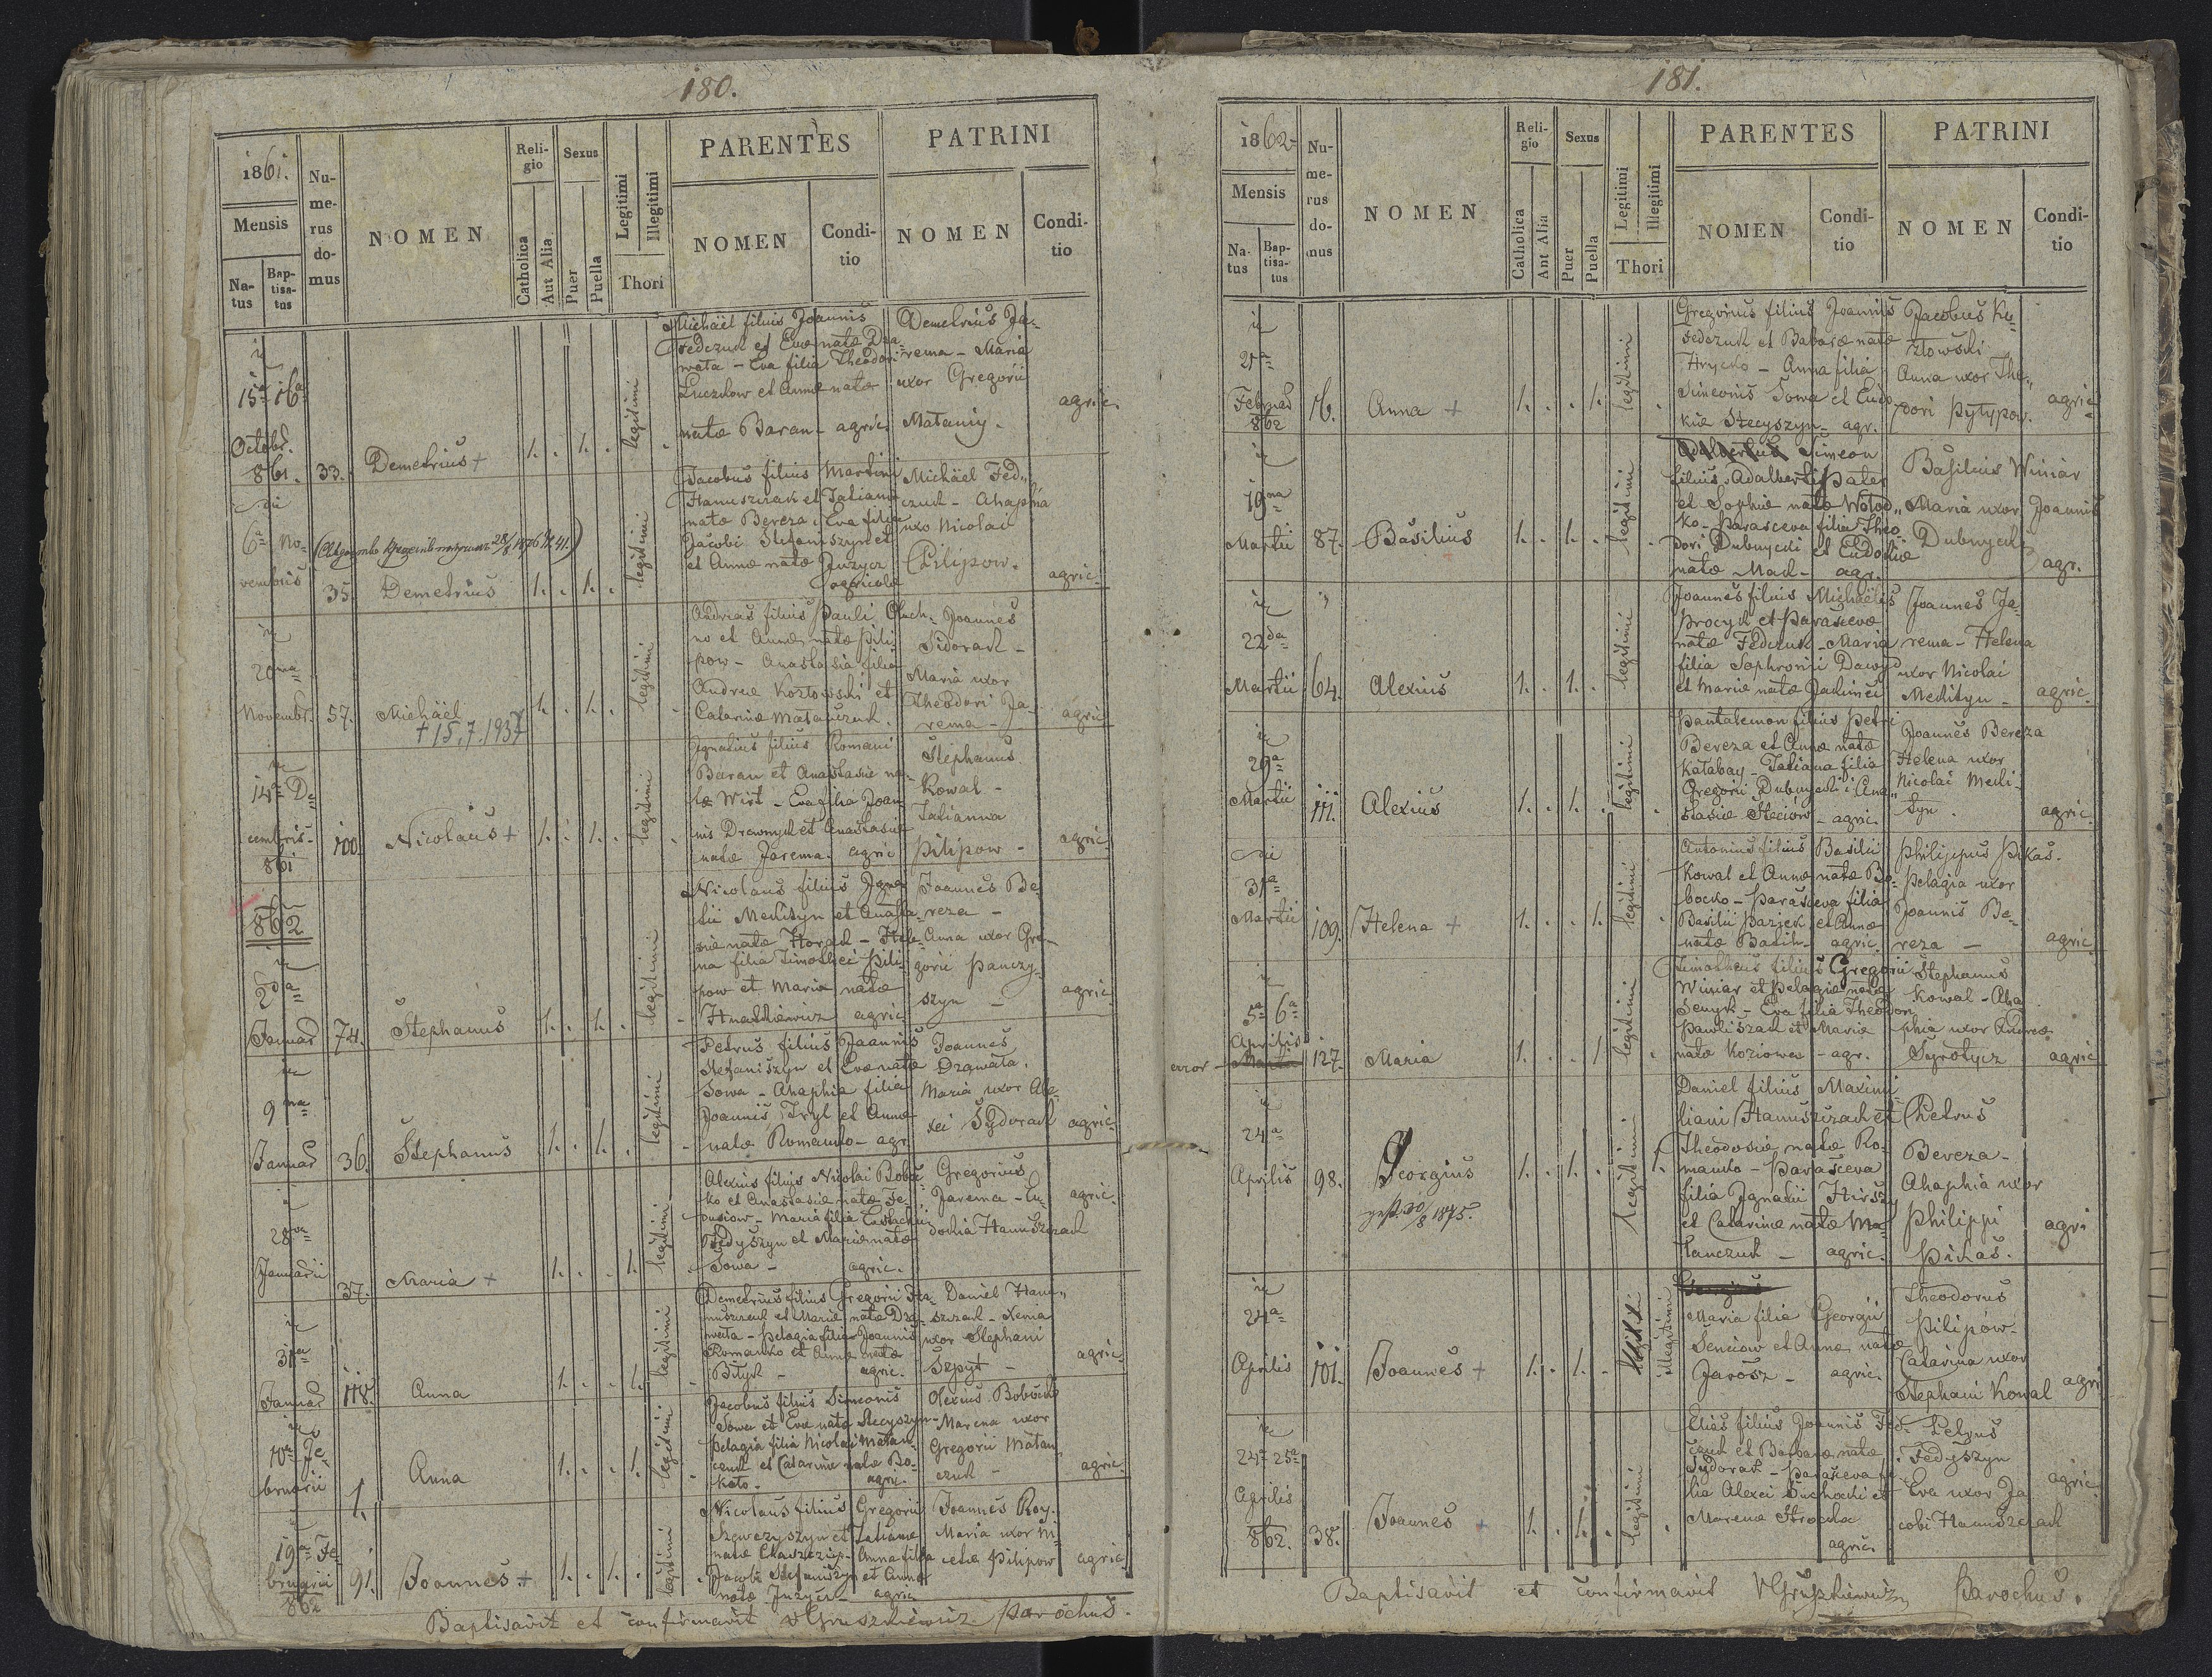 180.
1861.
Mensis
Na-
tus
Bap-
tisa-
tus
Nu-
me-
rus
do-
mus
NOMEN
Reli-
gio
Catholica
Aut Alia
Sexus
Puer
Puella
Legitimi
Illegitimi
Thori
PARENTES
NOMEN
Condi-
tio
PATRINI
NOMEN
Condi-
tio
15a 16a
Octobr.
861.
33.
Demetrius +
1. . 1. .
legitimi
Michaël filius Joannis
Fedczuk et Evæ natæ Dra-
wata - Eva filia Theodori
Luczkow et Annæ natæ
natæ Baran - agric.
Demetrius Ja-
rema - Maria
uxor Gregorii
agric.
6a No-
vembris
35.
Demetrius
1. . 1. .
legitimi
Jacobus filius Martini
Hanuszczak et Tatianæ
natæ Bereza, Eva filia
Jacobi Stefaniszyn et
et Annæ natæ Juzycz
agricolæ
Michäel Fed-
czuk - Ahaphia
uxo Nicolai
Pilipow.
agric.
20ma
Novembr.
57.
Michäel
+ 15.7.1937
1. . 1. .
legitimi
Andrias filius Pauli Och-
no et Annæ natæ Pili-
pow - Anastasia filia
Andreæ Kozłowski et
Catarinæ Matanczuk.
Joannes
Sidorak -
Maria uxor
Theodori Ja-
rema -
agric.
14a De-
cembris
861
100.
Nicolaus +
1. . 1. .
legitimi
Ignatius filius Romani
Baran et Anastasiæ na-
tæ Wirt - Eva filia Joan-
nis Drewnyck et Anastasiæ
natæ Jarema. agric
Stephanus
Kowal -
Tatianna
Pilipow -
agric.
862
2da
Januar
74.
Stephanus
1. . 1. .
legitimi
Nicolaus filius Igna-
tii Medityn et Anasta-
siæ natæ Horak - Hele-
na filia Timothei Pili-
pow et Mariæ natæ
Hnatkiewicz agric.
Joannes Be-
reza -
Anna uxor Gre-
gorii Panczy-
szyn -
agric.
9na
Januar
36.
Stephanus
1. . 1. .
legitimi
Petrus filius Joannis
Stefaniszyn et Evæ natæ
Sowa - Ahaphia filia
Joannis Tryl et Annæ
natæ Romanko - agr.
Joannes
Drawata.
Maria uxor Ale-
xei Sydorak
agric.
28va
Januarii
37.
Maria +
1. . . 1.
legitimi
Alexius filius Nicolai Boboc-
ko et Anastasiæ natæ Fe-
Maria filia Eustachii
Fedyszyn et Mariæ natæ
Sowa - agric.
Gregorius
Jarema - Eu-
dokia Hanuszczak
agric.
31a
Januar
118.
Anna
1. . . 1.
legitimi
Demetrius filius Gregorii Ha-
nuszczak et Mariæ natæ Dra-
wata - Pelagia filia Joannis
Romanko et Annæ natæ
Bityk - agric.
Daniel Hanu-
szczak - Xenia
uxor Stephani
Szpyt -
agric.
10a Fe-
bruarii
1.
Anna
1. . . 1.
legitimi
Jacobus filius Simeonis
Sowa et Evæ natæ Stecyszyn -
Pelagia filia Nicolai Matan-
czuk et Catarinæ natæ Bo-
kato - agric.
Olexius Bobocko
Marena uxor
Gregorii Matan-
czuk -
agric.
19a Fe-
bruarii
862
91.
Joannes +
1. . 1. .
legitimi
Nicolaus filius Gregorii
Szewczyszyn et Tatianæ
Anna filia
Jacobi Stefaniszyn et Annæ
natæ Juzycz - agric.
Joannes Roy.
Maria uxor Mi-
Pilipow
agric.
Baptisavit et confirmavit Gruszkiewicz parochus.
181.
1862.
Mensis
Na-
tus
Bap-
tisa-
tus
Nu-
me-
rus
do-
mus
NOMEN
Reli-
gio
Catholica
Aut Alia
Sexus
Puer
Puella
Legitimi
Illegitimi
Thori
PARENTES
NOMEN
Condi-
tio
PATRINI
NOMEN
Condi-
tio
21a
Februar
862
16.
Anna +
1. . . 1.
legitimi
Gregorius filius Joannis
Fedczuk et Babaræ natæ
Hrycko - Anna filia
Simeonis Sowa et Eudo-
kiæ Stecyszyn - agr.
Jacobus Ko-
złowski
Anna uxor Theo-
dori Pylypow.
agric
19na
Martii
87.
Basilius
1. . 1. .
legitimi
Simeon
filius Adalberti Pater
et Sophiæ natæ Wołod-
ko - Parasceva filia Theo-
dori Dubnycki et Eudokiæ
natæ Mack - agr.
Basilius Winiar
Maria uxor Joannis
Dubnycki
agr.
22da
Martii
64.
Alexius
1. . 1. .
legitimi
Joannes filius Michaelis
Procyk et Parascevæ
natæ Fedczuk - Maria
filia Sophronii Dawyd
et Mariæ natæ Jakimei
Joannes Ja-
rema - Helena
uxor Nicolai
Medityn -
agric.
29a
Martii
111.
Alexius
1. . 1. .
legitimi
Pantalemon filius Petri
Bereza et Annæ natæ
Katabay - Tatiana filia
Gregorii Dubnycki i Ana-
stasiæ Steciow - agric.
Joannes Bereza
Helena uxor
Nicolai Medi-
tyn.
agric.
31a
Martii
109.
Helena +
1. . . 1.
legitimi
Antonius filius Basilii
Kowal et Annæ natæ Bo-
bocko - Parasceva filia
Basilii Pazjek et Annæ
natæ Batih - agric.
Philippus Pikas.
Pelagia uxor
Joannis Be-
reza -
agric
5a 6a
Aprilis
error - Martii
127.
Maria
1. . . 1
legitimi
Timotheus filius Gregorii
Winiar et Pelagiæ natæ
Senyk - Eva filia Theodori
Pawliszak et Mariæ
natæ Koziowa - agr.
Stephanus
Kowal - Aha-
phia uxor Andreæ
Syrotycz
agric
24a
Aprilis
98.
Georgius
1. . 1. .
legitimi
Daniel filius Maximi-
liani Hanuszczak et
Theodosiæ natæ Ro-
manko - Parasceva
filia Ignatii Hirsz
et Catarinæ natæ Ma-
tanczuk - agric.
Petrus
Bereza -
Ahaphia uxor
Philippi
Pikas.
agri
24a
Aprilis
101.
Joannes +
1. . 1. .
illegitimi
Maria filia Georgii
Senciow et Annæ natæ
Jarosz - agric.
Theodorus
Pilipow -
Catarina uxor
Stephani Kowal
agri
24a 25a
Aprilis
862.
38.
Joannes +
1. . 1. .
legitimi
Elias filius Joannis Fed-
czuk et Barbaræ natæ
Sydorak - Parasceva fi-
lia Alexei Suchocki et
Marenæ Strocka
agric.
Petrus
Fedyszyn
Eva uxor Ja-
cobi Hanuszczak
agric.
Baptisavit et confirmavit Gruszkiewicz Parochus.